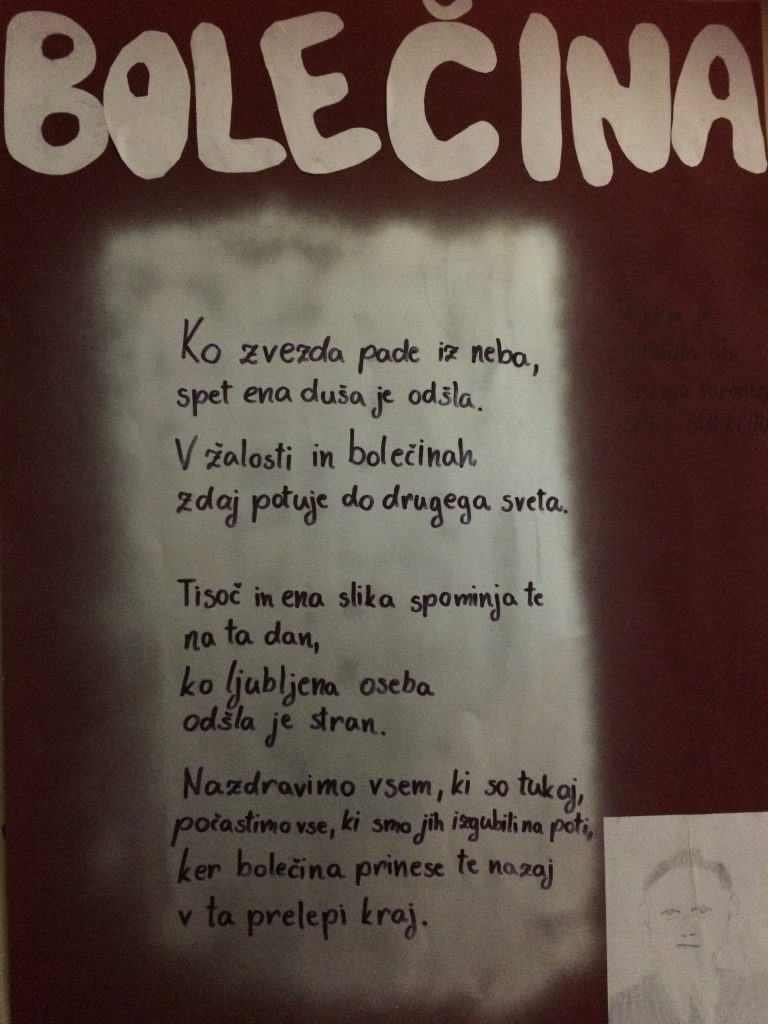 BOLEČINA
Ko zvezda pade iz neba,
spet ena duša je odšla.
V žalosti in bolečinah
zdaj potuje do drugega sveta.
Tisoč in ena slika spominja te
na ta dan,
ko ljubljena oseba
odšla je stran.
Nazdravimo vsem, ki so tukaj,
počastimo vse, ki smo jih izgubili na poti,
ker bolečina prinese te nazaj
v ta prelepi kraj.
je
nastala ob